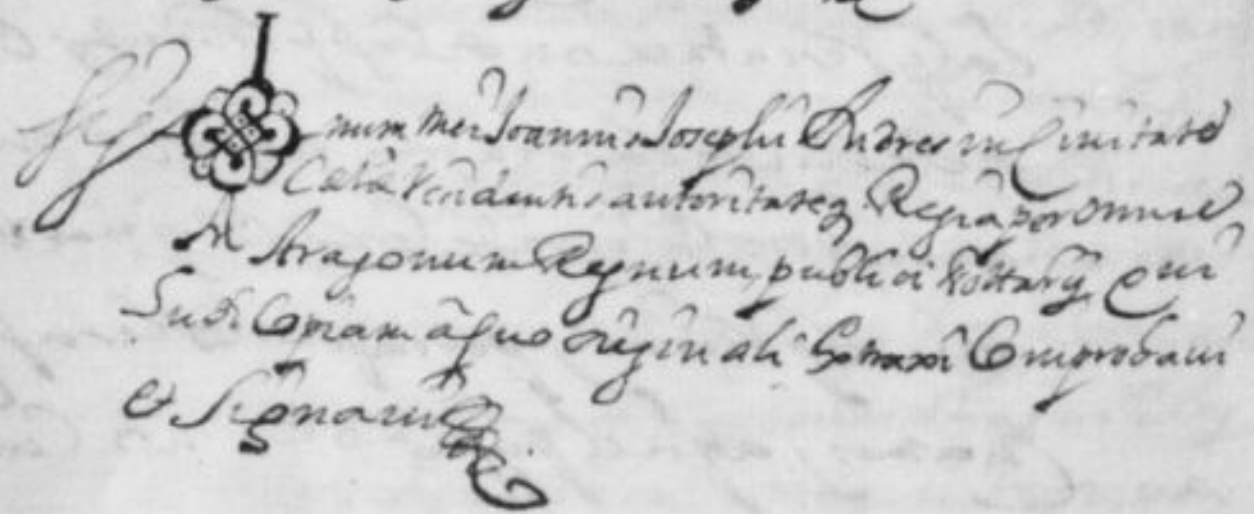 Sig num mei Joannis Josephi Andres in Civitate
Cesae Residentis autoritateq Regia per omne
Aragonum Regnum publici Nottarij qui
hanc Copiam a suo origin ali extraxi Comprobavi
& Signavi